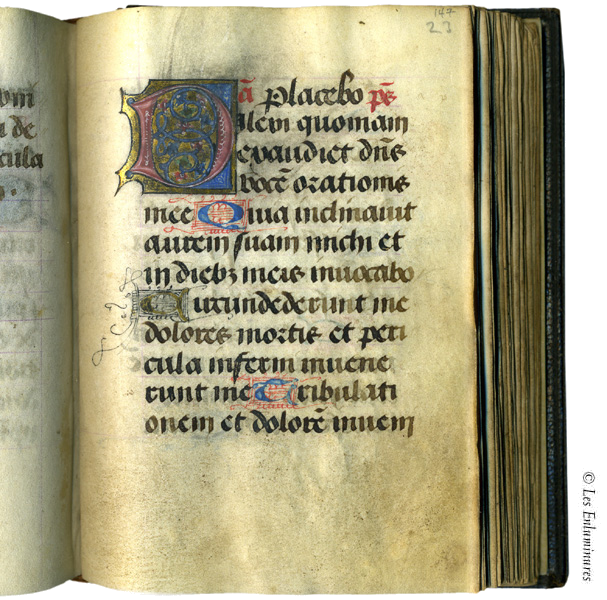 147
23
ā Placebo ps̄
Dilexi quoniam
exaudiet dn̄s
vocē orationis
mee Quia inclinauit
aurem suam michi et
in diebꝫ meis inuocabo
Circundederunt me
dolores mortis et peri
cula inferni inuene
runt me Tribulati
onem et dolorē inueni
de
cula
© Les Enluminures